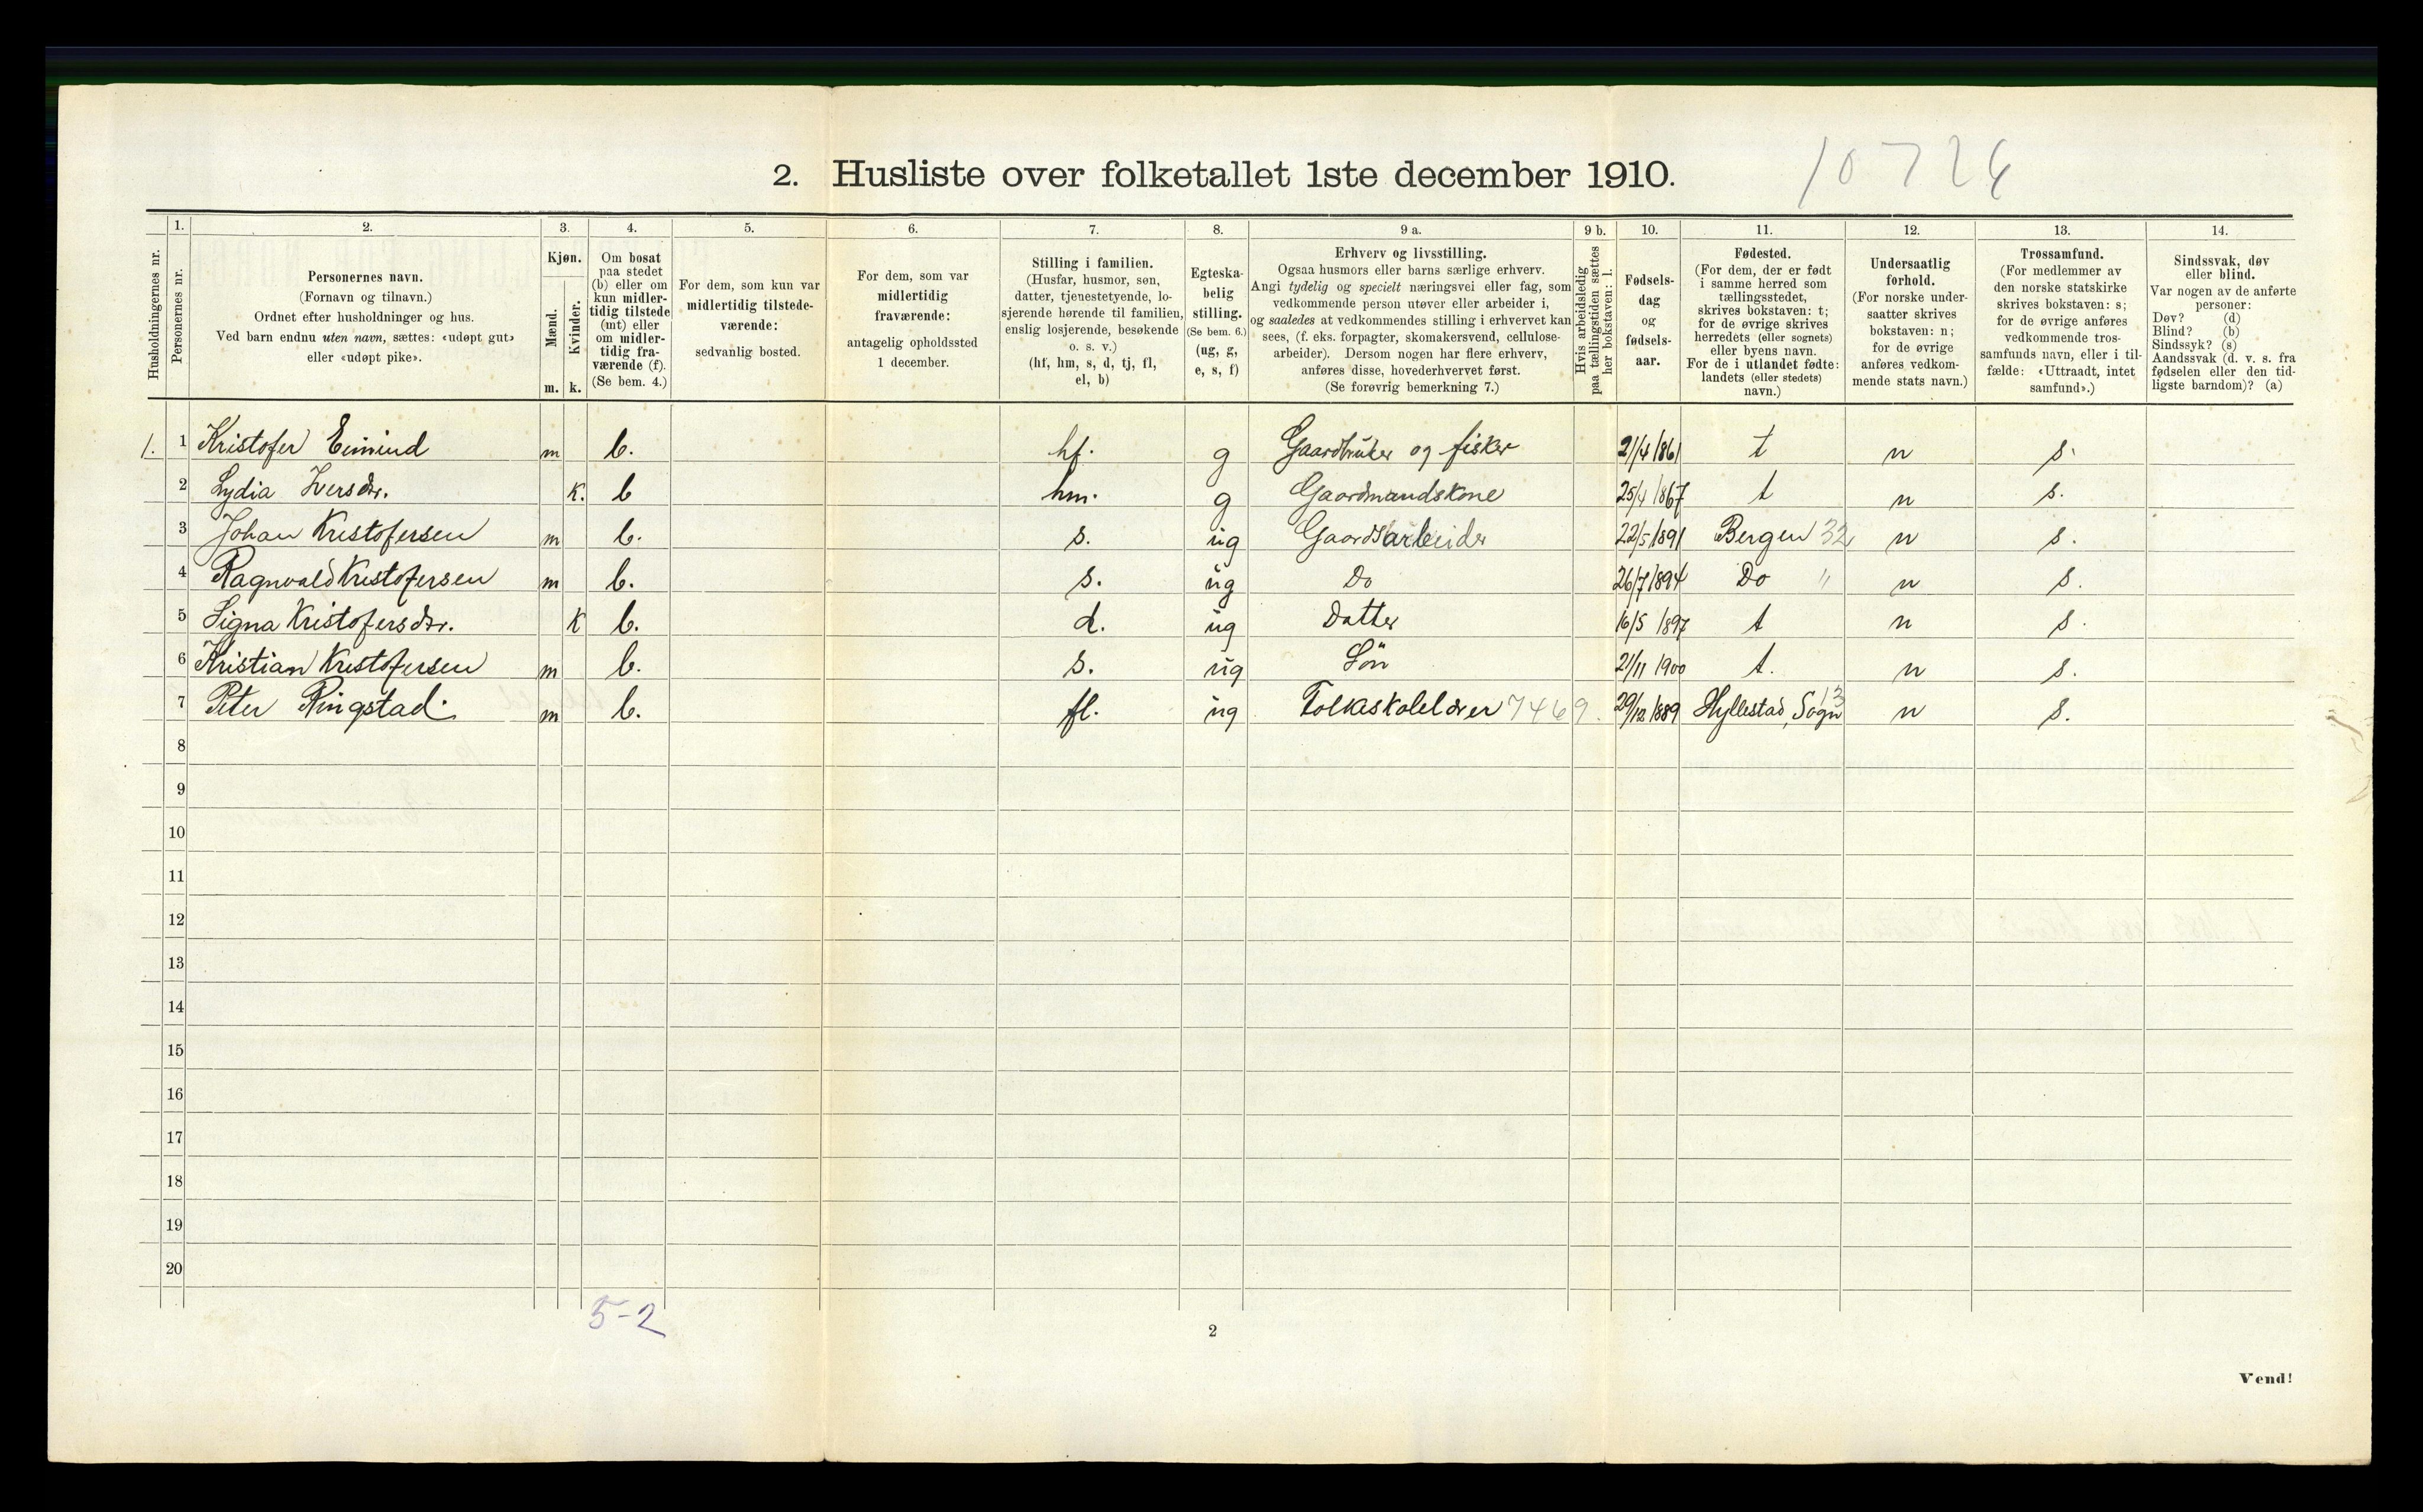 2. Husliste over folketallet 1ste december 1910.
10726
Husholdningernes nr.
1. Personernes nr.
2. Personernes navn.
(Fornavn og tilnavn.)
Ordnet efter husholdninger og hus.
Ved barn endnu uten navn, sættes: «udøpt gut»
eller «udøpt pike».
3. Kjøn.
Mænd. m.
Kvinder. k.
4. Om bosat
paa stedet
(b) eller om
kun midler-
tidig tilstede
(mt) eller
om midler-
tidig fra-
værende (f).
(Se bem. 4.)
5. For dem, som kun var
midlertidig tilstede-
værende:
sedvanlig bosted.
6. For dem, som var
midlertidig
fraværende:
antagelig opholdssted
1 december.
7. Stilling i familien.
(Husfar, husmor, søn,
datter, tjenestetyende, lo-
sjerende hørende til familien,
enslig losjerende, besøkende
o. s. v.)
(hf, hm, s, d, tj, fl,
el, b)
8. Egteska-
belig
stilling.
(Se bem. 6.)
(ug, g,
e, s, f)
9 a. Erhverv og livsstilling.
Ogsaa husmors eller barns særlige erhverv.
Angi tydelig og specielt næringsvei eller fag, som
vedkommende person utøver eller arbeider i,
og saaledes at vedkommendes stilling i erhvervet kan
sees, (f. eks. forpagter, skomakersvend, cellulose-
arbeider). Dersom nogen har flere erhverv,
anføres disse, hovederhvervet først.
(Se forøvrig bemerkning 7.)
9 b. Hvis arbeidsledig
paa tællingstiden sættes
her bokstaven: l.
10. Fødsels-
dag
og
fødsels-
aar.
11. Fødested.
(For dem, der er født
i samme herred som
tællingsstedet,
skrives bokstaven: t;
for de øvrige skrives
herredets (eller sognets)
eller byens navn.
For de i utlandet fødte:
landets (eller stedets)
navn.)
12. Undersaatlig
forhold.
(For norske under-
saatter skrives
bokstaven: n;
for de øvrige
anføres vedkom-
mende stats navn.)
13. Trossamfund.
(For medlemmer av
den norske statskirke
skrives bokstaven: s;
for de øvrige anføres
vedkommende tros-
samfunds navn, eller i til-
fælde: «Uttraadt, intet
samfund».)
14. Sindssvak, døv
eller blind.
Var nogen av de anførte
personer:
Døv? (d)
Blind? (b)
Sindssyk? (s)
Aandssvak (d. v. s. fra
fødselen eller den tid-
ligste barndom)? (a)
1. 1 Kristofer Eimind m b. hf. g Gaardbruker og fisker 21/4 1861 t n s.
2 Lydia Iversdr. k. b hm. g Gaardmandskone 25/4 1867 t n s.
3 Johan Kristofersen m b. s. ug Gaardsarbeider 22/5 1891 Bergen 32 n s.
4 Ragnvald Kristofersen m b. s. ug Do 26/7 1894 Do " n s.
5 Signa Kristofersdr. k b. d. ug Datter 16/5 1897 t n s.
6 Kristian Kristofersen m b. s. ug Sön 21/11 1900 t. n s.
7 Peter Ringstad m b. fl. ug Folkeskolelærer 7469. 29/12 1889 Hyllestad, Sogn 13 n s.
8
9
10
11
12
13
14
15
16
17
18
19
20
5-2
2
Vend!